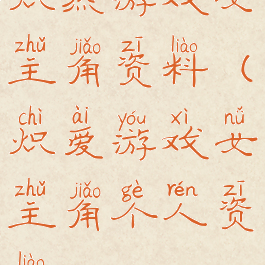 炽爱游戏女
zhǔ jiǎo zī liào
主角资料（
chì ài yóu xì nǚ
炽爱游戏女
zhǔ jiǎo gè rén zī
主角个人资
liào